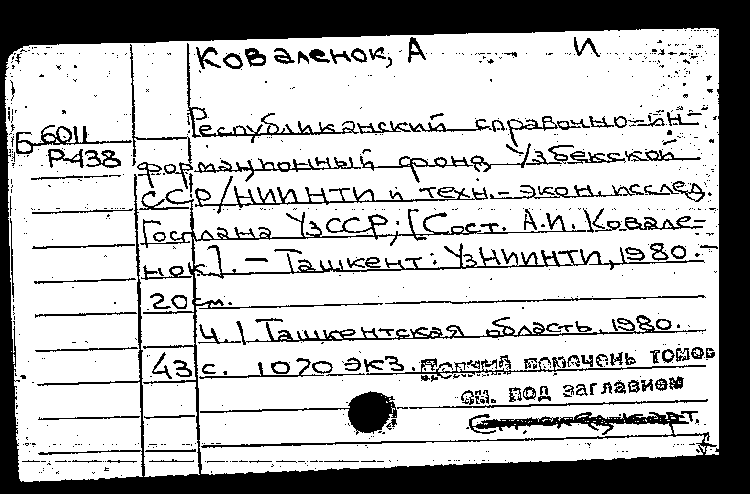 Коваленок, А И
Республиканский справочно-ин-
Б 6011
Р-438
формационный фонд Узбекской
ССР/НИИНТИ и техн.-экон. исслед.
Госплана УзССР; [Сост. А.И. Ковале-
нок]. – Ташкент: УзНИИНТИ, 1980. –
20 см.
Ч. 1. Ташкентская область. 1980.
43 с. 1070 экз. Полный перечень томов
см. под заглавием